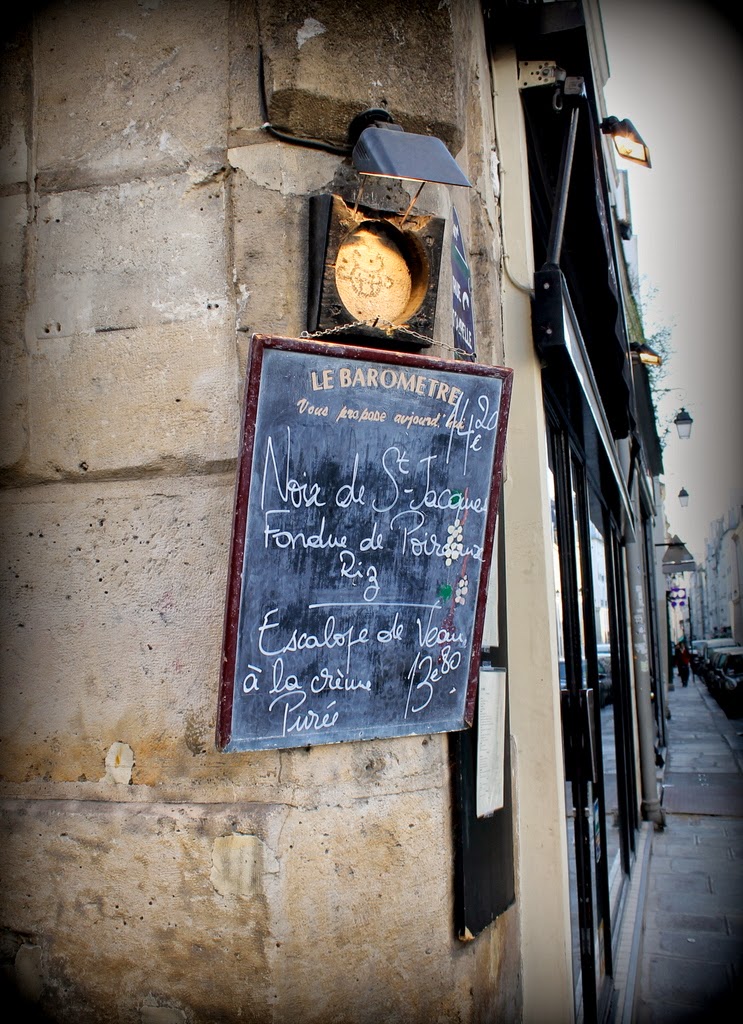 LE BAROMETRE
Vous propose aujourd'hui
14€20
Noix de St-Jacques
Fondue de Poireaux
Riz
Escalope de Veau
à la crème 13€80
Purée